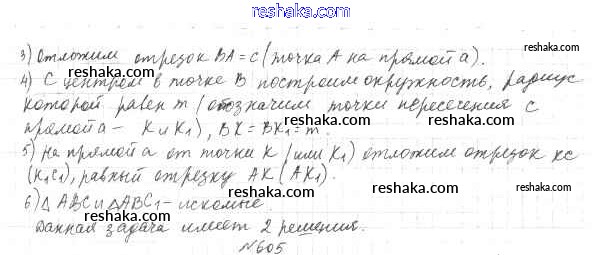 reshaka.com
3) Отложим отрезок BA = c (точка A на прямой a).
4) С центром в точке B построим окружность, радиус
которой равен m (обозначим точки пересечения с
прямой a - K и K₁), BK = BK₁ = m.
5) На прямой a от точки K (или K₁) отложим отрезок KC
(K₁C₁), равный отрезку AK (AK₁).
6) △ABC и △ABC₁ - искомые.
Данная задача имеет 2 решения.
№605
reshaka.com
reshaka.com
reshaka.com
reshaka.com
reshaka.com
reshaka.com
reshaka.com
reshaka.com